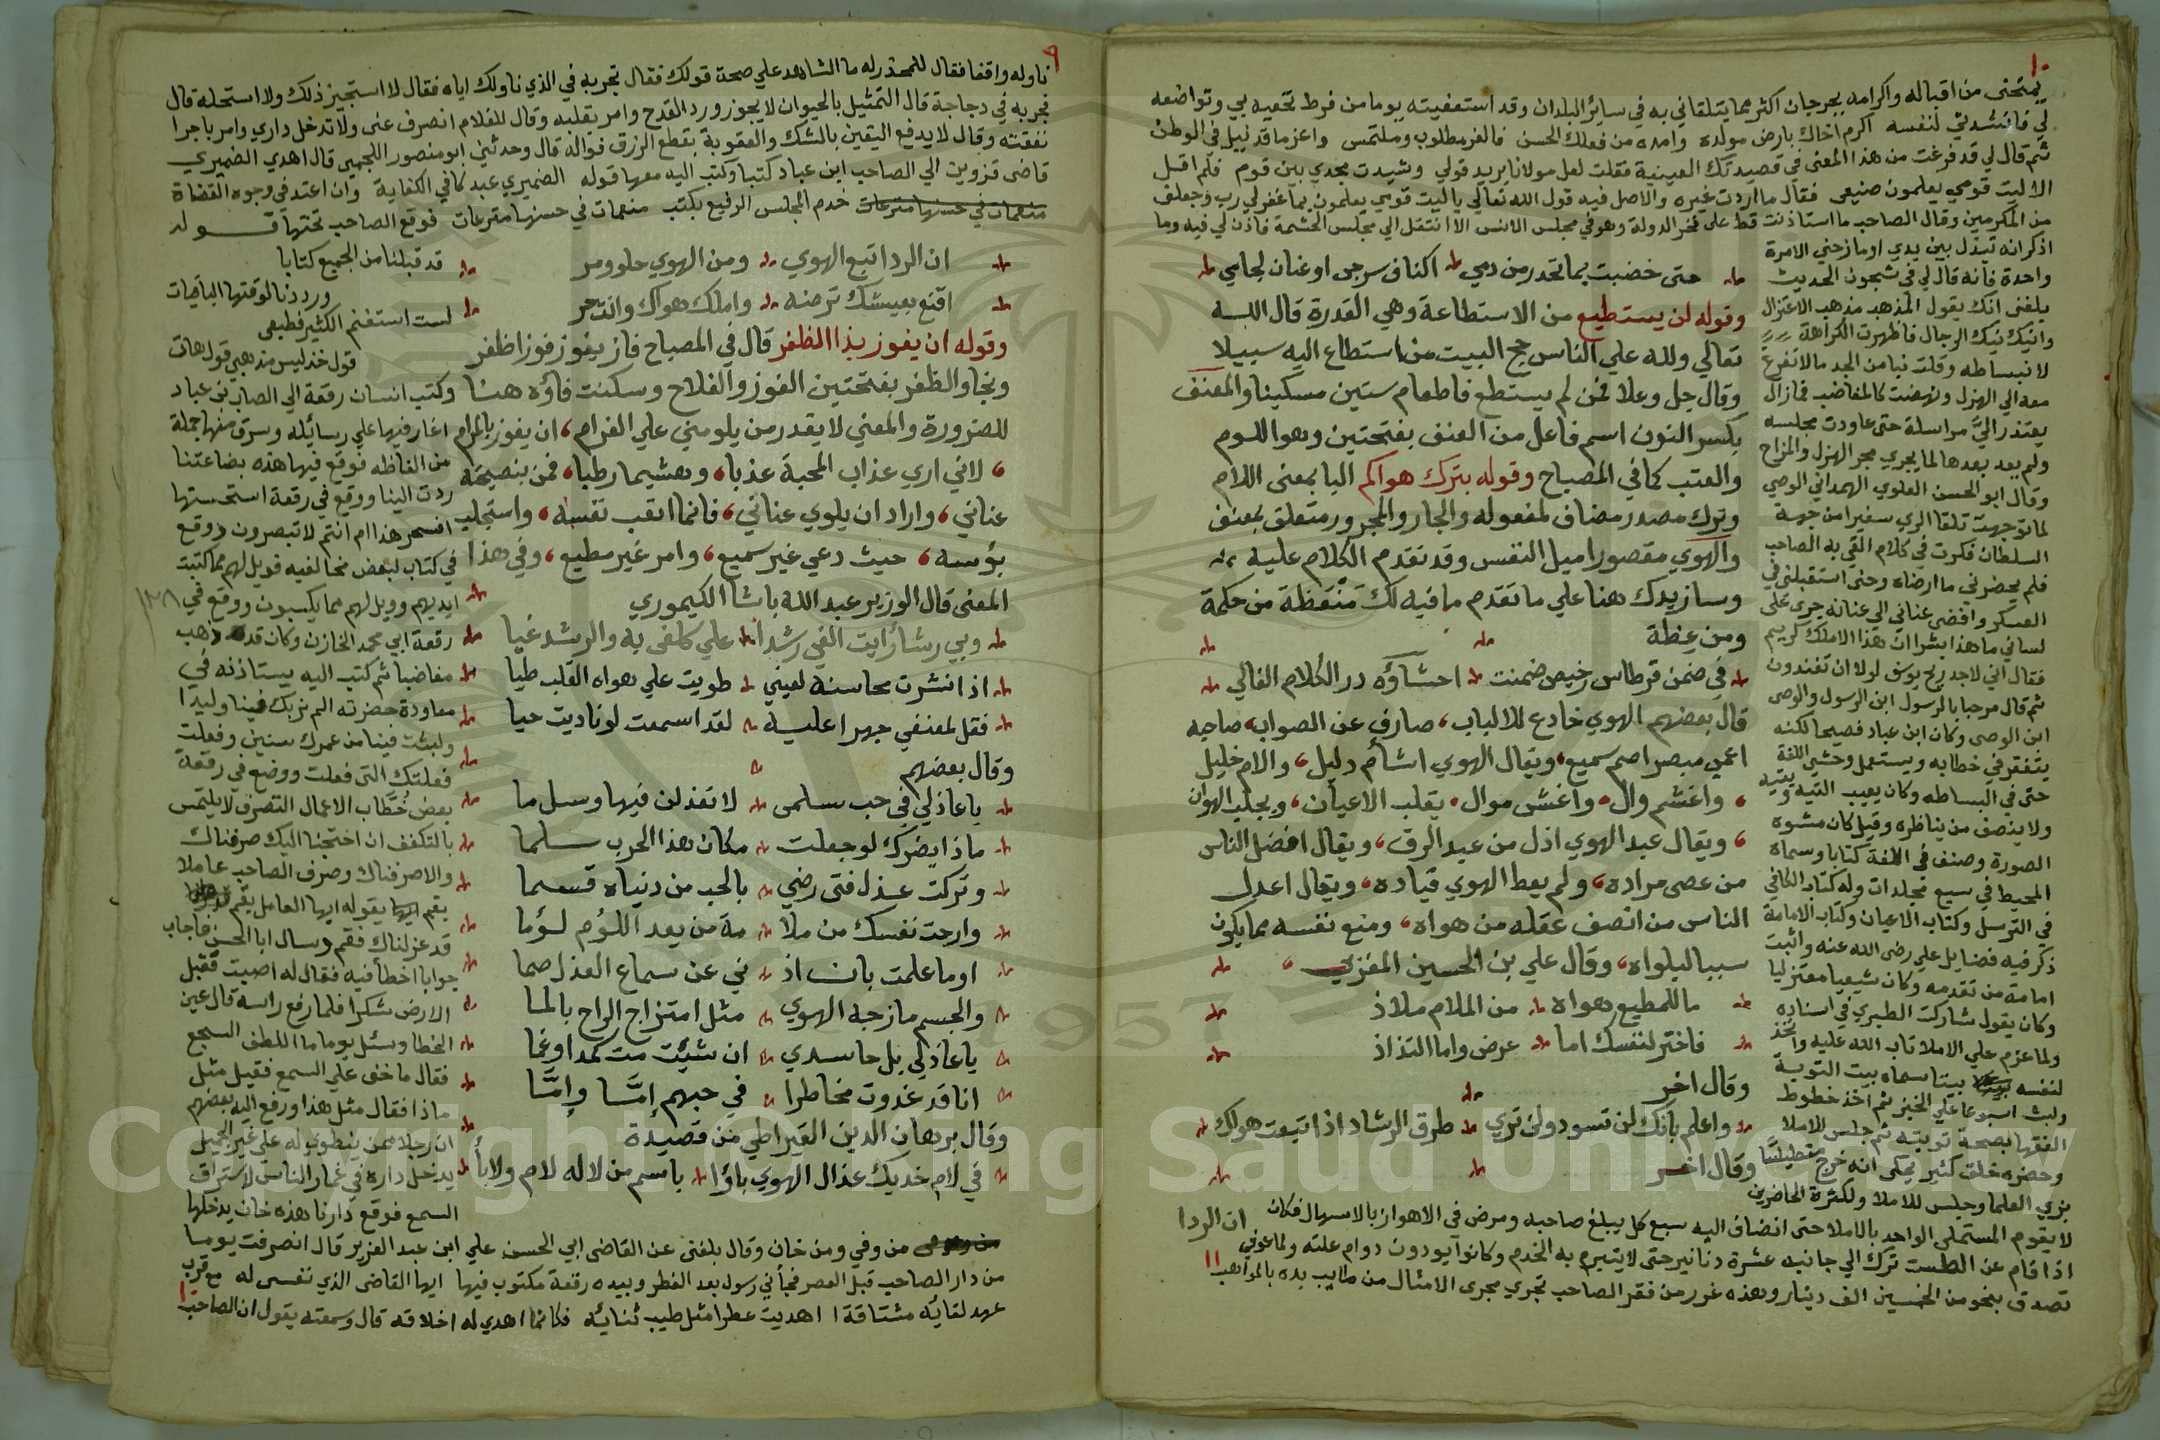 ١٠
يمتحنى من اقباله واكرامه بجرجان اكثر مما يتلقاني به في سائر البلدان وقد استعفيته يوما من فرط تحفيه بي وتواضعه
لي فانشدني لنفسه اكرم اخاك بارض مولده وامده من فعلك الحسن فالعز مطلوب وملتمس واعز ما قد نيل في الوطن
ثم قال لي قد فرغت من هذا المعنى في قصيدتك العينية فقلت لعل مولانا يريد قولي وشيدت مجدي بين قوم فلم اقل
الا ليت قومي يعلمون صنيعى فقال ما اردت غيره والاصل فيه قول الله تعالي يا ليت قومي يعلمون بما غفر لي ربي وجعلني
من المكرمين وقال الصاحب ما استاذنت قط على فخر الدولة وهو في مجلس الانس الا انتقل الي مجلس الحشمة فاذن لي فيه وما
اذكر انه تبذل بين يدي او مازحني الا مرة
واحدة فانه قال لي في شجون الحديث
بلغنى انك يقول المذهب مذهب الاعتزال
فاظهرت الكراهة
لانبساطه وقلت نبا من الجد ما لا نفرغ
معه الي الهزل ونهضت كالمغاضب فما زال
يعتذر الي مراسلة حتى عاودت مجلسه
ولم يعد بعدها لما يجري مجر الهزل والمزاح
وقال ابو الحسن العلوي الهمداني الوصي
لما توجهت تلقا الري سفيرا من جهة
السلطان فكرت في كلام القي به الصاحب
فلم يحضرني ما ارضاه وحتى استقبلني في
العسكر وافضى عناني الي عنانه جري على
لساني ما هذا بشرا ان هذا الا ملك كريم
فقال اني لاجد ريح يوسف لولا ان تفندون
ثم قال مرحبا بالرسول ابن الرسول والوصى
ابن الوصى وكان ابن عباد فصيحا لكنه
يتقعر في خطابه ويستعمل وحشي اللغة
حتى في انبساطه وكان يعيب التيه ويتيه
ولا ينصف من يناظره وقيل كان مشوه
الصورة وصنف في اللغة كتابا وسماه
المحيط في سبع مجلدات وله كتاب الكافي
في الترسل وكتاب الاعيان وكتاب الامامة
ذكر فيه فضايل علي رضى الله عنه واثبت
امامة من تقدمه وكان شيعيا معتزليا
وكان يقول شاركت الطبري في اسناده
ولما عزم علي الاملا تاب الله عليه واتخذ
لنفسه بيتا سماه بيت التوبة
ولبث اسبوعا علي الخير ثم اخذ خطوط
الفقها بصحة توبته ثم جلس للاملا
وحضره خلق كثير يحكى انه خرج متطيلسا
بزي العلما وجلس للاملا ولكثرة الحاضرين
لا يقوم المستملى الواحد بالاملا حتى انضاف اليه سبع كل يبلغ صاحبه ومرض في الاهواز بالاسهال فكان
اذا قام عن الطست ترك الي جانبه عشرة دنانير حتى لا يتبرم به الخدم وكانوا يودون دوام علته ولما عوفي
تصدق بنحو من الخمسين الف دينار وهذه غرر من فقر الصاحب تجري مجرى الامثال من طايب بده بالمواهب
حتى خضبت بما تحدر من دمي اكناف سرجى او عنان لجامي
وقوله لن يستطيع من الاستطاعة وهي القدرة قال الله
تعالي ولله علي الناس حج البيت من استطاع اليه سبيلا
وقال جل وعلا فمن لم يستطع فاطعام ستين مسكينا والمعنف
بكسر النون اسم فاعل من العنف بفتحتين وهو اللوم
والعتب كما في المصباح وقوله بترك هواكم البا بمعنى اللام
وترك مصدر مضاف لمفعوله والجار والمجرور متعلق بمعنف
والهوي مقصورا ميل النفس وقد تقدم الكلام عليه
وسازيدك هنا علي ما تقدم ما فيه لك منقظة من حكمة
ومن عظة
في ضمن قرطاس رخيص ضمنت احشاؤه در الكلام الغالي
قال بعضهم الهوي خادع للالباب، صارف عن الصواب، صاحبه
اعمي مبصر اصم سميع، ويقال الهوي اشأم دليل، والام خليل
، واغشم وال، واغش موال، يقلب الاعيان، ويجلب الهوان
، ويقال عبد الهوي اذل من عبد الرق، ويقال افضل الناس
من عصى مراده، ولم يعط الهوي قياده، ويقال اعدل
الناس من انصف عقله من هواه، ومنع نفسه مما يكون
سببا لبلواه، وقال علي بن الحسين المغربي
ما للمطيع هواه من الملام ملاذ
فاختر لنفسك اما عرض واما التذاذ
وقال اخر
واعلم بانك لن تسود ولن تري طرق الرشاد اذا اتبعت هواك
وقال اخر
ان الردا
١١
٩
ناوله واقفا فقال للمحذر له ما الشاهد علي صحة قولك فقال تجربه في الذي ناولك اياه فقال لا استجيز ذلك ولا استحله قال
فجربه في دجاجة قال التمثيل بالحيوان لا يجوز ورد القدح وامر بقلبه وقال للغلام انصرف عنى ولا تدخل داري وامر باجرا
نفقته وقال لا يدفع اليقين بالشك والعقوبة بقطع الرزق نوالة قال وحدثني ابو منصور اللجيمي قال اهدي الضميري
قاضى قزوين الي الصاحب ابن عباد كتبا وكتب اليه معها قوله الضميري عبد كافي الكفاية وان اعتد في وجوه القضاة
منعمات في حسنها مترعات خدم المجلس الرفيع بكتب منعمات في حسنها مترعات فوقع الصاحب تحتها قوله
قد قبلنا من الجميع كتابا
ورددنا لوقتها الباقيات
لست استغنم الكثير فطبعى
قول خذ ليس مذهبي قول هات
وكتب انسان رقعة الي الصاحب بن عباد
اغار فيها علي رسائله وسرق منها جملة
من الفاظه فوقع فيها هذه بضاعتنا
ردت الينا ووقع في رقعة استحسنها
افسحر هذا ام انتم لا تبصرون ووقع
في كتاب لبعض مخالفيه فويل لهم مما كتبت
ايديهم وويل لهم مما يكسبون ووقع في
رقعة ابي محمد الخازن وكان قد ذهب
مغاضبا ثم كتب اليه يستاذنه في
معاودة حضرته الم نربك فينا وليدا
ولبثت فينا من عمرك سنين وفعلت
فعلتك التى فعلت ووضع في رقعة
بعض خطاب الاعمال التصرف لا يلتمس
بالتكفف ان احتجنا اليك صرفناك
والا صرفناك وصرف الصاحب عاملا
بقم يقوله ايها العامل بقم
قد عزلناك فقم وسال ابا الحسن فاجاب
جوابا اخطأ فيه فقال له اصبت فقبل
الارض شكرا فلما رفع راسه قال عين
الخطا وسئل يوما ما اللطف السجع
فقال ما خف علي السمع فقيل مثل
ماذا فقال مثل هذا ورفع اليه بعضهم
ان رجلا ممن ينطوي له علي غير الجميل
يدخل داره في غمار الناس لاستراق
السمع فوقع دارنا هذه خان يدخلها
من وفي ومن خان وقال بلغنى عن القاضى ابي الحسن علي ابن عبد العزيز قال انصرفت يوما
من دار الصاحب قبل العصر فجأني رسوله بعد الفطر وبيده رقعة مكتوب فيها ايها القاضى الذي نفسى له مع قرب
عهد لقائه مشتاقة اهديت عطرا مثل طيب ثنائه فكانما اهدي له اخلاقه قال وسمعته يقول ان الصاحب
١٢٨
ان الردا تبع الهوي ومن الهوي حلو ومر
اقنع بعيشك ترضه واملك هواك وانت حر
وقوله ان يفوز بذا الظفر قال في المصباح فاز يفوز فوزا ظفر
ونجا والظفر بفتحتين الفوز والفلاح وسكنت فاؤه هنا
للضرورة والمعني لا يقدر من يلومني علي الغرام، ان يفوز بالمرام
، لاني اري عذاب المحبة عذبا، وهشيما رطبا، فمن بنصيحة
عناني، واراد ان يلوي عناني، فانما اتعب نفسه، واستجلب
بؤسه، حيث دعي غير سميع، وامر غير مطيع، وفي هذا
المعنى قال الوزير عبد الله باشا الكيموري
وبي رشأ رايت الغي رشدا علي كلفى به والرشد غيا
اذا نشرت محاسنه لعيني طويت علي هواه القلب طيا
فقل لمعنفي جهرا عليه لقد اسمعت لو ناديت حيا
وقال بعضهم
يا عاذلي في حب سلمى لا تعذلن فيها وسل ما
ماذا يضرك لو جعلت مكان هذا الحرب سلما
وتركت عذل فتى رضي بالحب من دنياه قسما
وارحت نفسك من ملا مة من يعد اللوم لؤما
او ما علمت بان اذ ني عن سماع العذل صما
والجسم مازجه الهوي مثل امتزاج الراح بالما
يا عاذلي بل حاسدي ان شئت مت كمدا وغما
انا قد غدوت مخاطرا في حبهم إمّا وإمّا
وقال برهان الدين القيراطي من قصيدة
في لام خديك عذال الهوي باؤا يا مسم من لاله لام ولا بأ
Copyright © King Saud University
1957